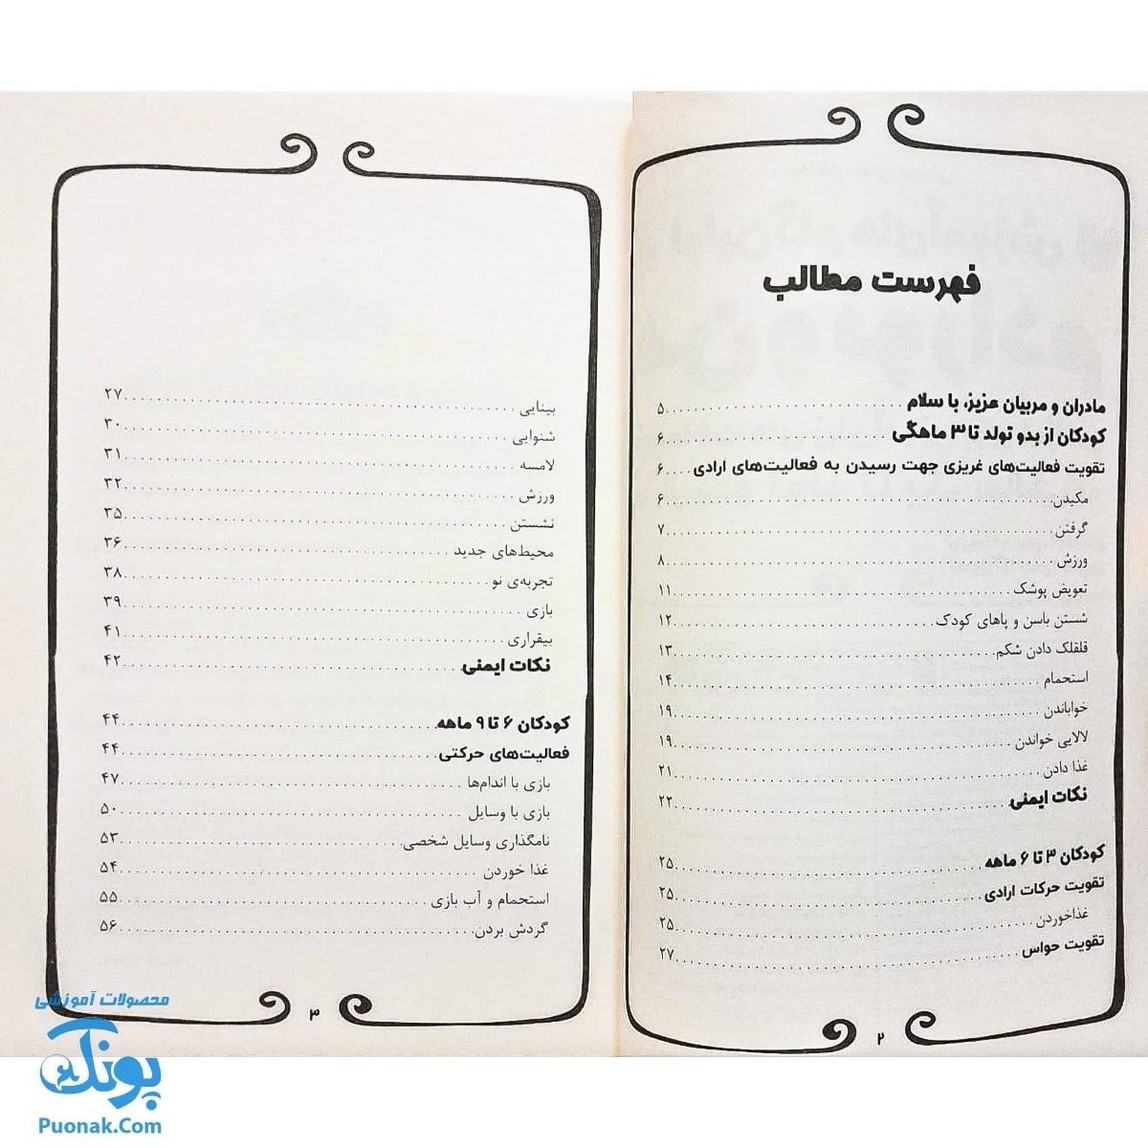 فهرست مطالب
مادران و مربیان عزیز، با سلام ۵
کودکان از بدو تولد تا ۳ ماهگی ۶
تقویت فعالیت‌های غریزی جهت رسیدن به فعالیت‌های ارادی ۶
مکیدن ۶
گرفتن ۷
ورزش ۸
تعویض پوشک ۱۱
شستن باسن و پاهای کودک ۱۲
قلقلک دادن شکم ۱۳
استحمام ۱۴
خواباندن ۱۹
لالایی خواندن ۱۹
غذا دادن ۲۱
نکات ایمنی ۲۲
کودکان ۳ تا ۶ ماهه ۲۵
تقویت حرکات ارادی ۲۵
غذاخوردن ۲۵
تقویت حواس ۲۷
۲
بینایی ۲۷
شنوایی ۳۰
لامسه ۳۱
ورزش ۳۲
نشستن ۳۵
محیط‌های جدید ۳۶
تجربه‌ی نو ۳۸
بازی ۳۹
بیقراری ۴۱
نکات ایمنی ۴۲
کودکان ۶ تا ۹ ماهه ۴۴
فعالیت‌های حرکتی ۴۴
بازی با اندام‌ها ۴۷
بازی با وسایل ۵۰
نامگذاری وسایل شخصی ۵۳
غذا خوردن ۵۴
استحمام و آب بازی ۵۵
گردش بردن ۵۶
۳
محصولات آموزشی
پونک
Puonak.Com